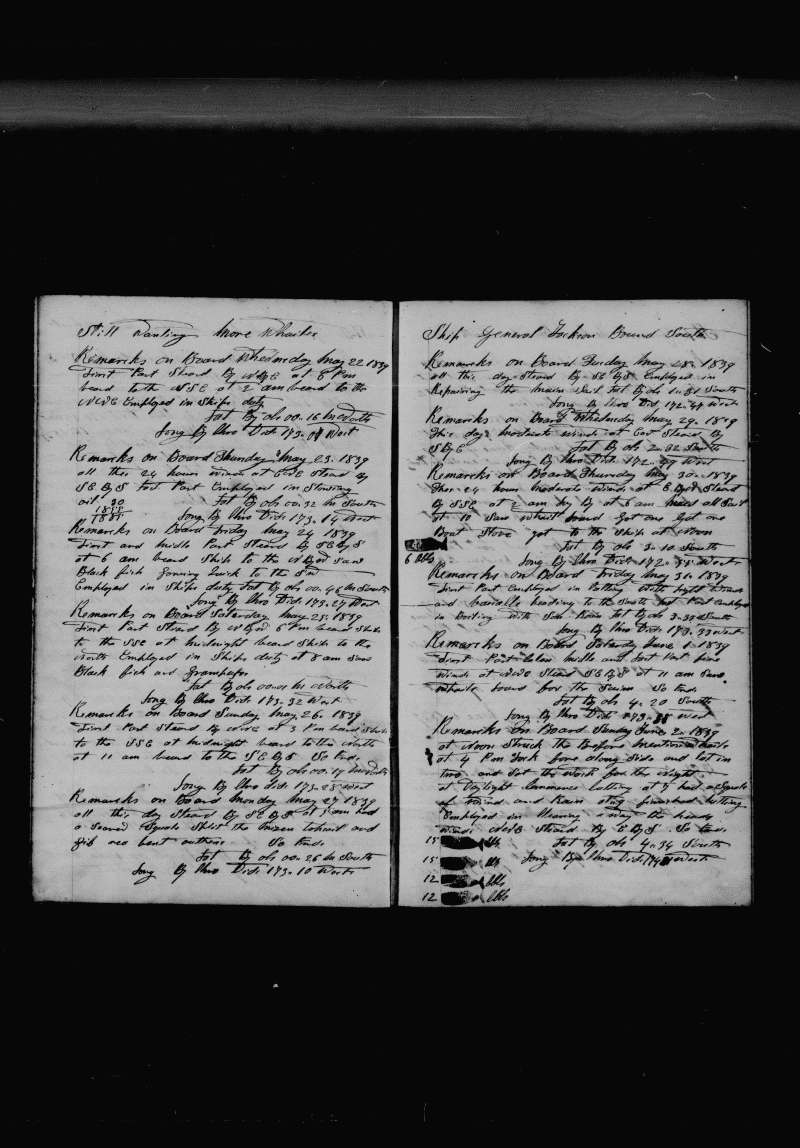 Still Wanting More Whailes
Remarcks on Board Whednesday May 22 1839
First Part Steard By NEBE at 6 Pm
heard to the SSE at 2 am heard to the
NENE Employed in Ships duty
Lat By obs 00.16 m North
Long By Chro Dist 173. Wort
Remarcks on Board Thursday May 23. 1839
all this 24 hours winds at ENE Steard By
SE By S last Part Employed in Stowing
oil 30
1855
1885
Lat By obs 00.32 m South
Long By Chro Dist 173.14 West
Remarcks on Board Friday May 24 1839
First and midle Part Steard By SE By S
at 6 am heard Ship to the N By W Saw
Black fish Going Quick to the
Employed in Ships duty Lat By obs 00.46 m South
Long By Chro Dist 173.27 West
Remarcks on Board Saturday May 25. 1839
First Part Steard By N By W 6 Pm heard Ship
to the SSE at midnight heard Ship to the
North Employed in Ships duty at 8 am Saw
Black fish and Grampuses
Lat By obs 00.01 m North
Long By Chro Dist 173.32 West
Remarcks on Board Sunday May 26. 1839
First Part Steard By NNE at 3 Pm heard Ship
to the SSE at midnight heard to the North
at 11 am heard to the SE By S So Ends
Lat By obs 00.19 m North
Long By Chro Dist 173.28 West
Remarcks on Board Monday May 27 1839
all this day Steard By SE By S at am had
a Seavear Squale Split the mizen topsail and
Jib and bent others So Ends
Lat By obs 00.26 m South
Long By Chro Dist 173.10 West
Ship General Jackson Bound South
Remarcks on Board Tusday May 28. 1839
all this day Steard By SE By S Employed in
Repairing the main Sail Lat By obs 1.51 South
Long By Chro Dist 172.47 West
Remarcks on Board Whednesday May 29. 1839
This day moderate winds at East Steard By
S By E Lat By obs 2.32 South
Long By Chro Dist 172.49 West
Remarcks on Board Thursday May 30. 1839
Thes 24 hours moderate winds at E By N Steard
By SSE at 2 am By at 6 am maid all Sail
at 10 Saw Whails Lowerd Got one Got one
Boat Stove got to the Ship at Noon
Lat By obs 3.10 South
6 bbls
Long By Chro Dist 172.55 West
Remarcks on Board Friday May 31. 1839
First Part Employed in Cutting With light winds
and heading to the South last Part Employed
in Boiling with Some Rain Lat By obs 3.39 South
Long By Chro Dist 173.33 West
Remarcks on Board Satarday June 1. 1839
First Part Calm midle and last Part fine
winds at Steard SE By S at 11 am Saw
whails lowerd for the Saim So Ends
Lat By obs 4.20 South
Long By Chro Dist 173.35 West
Remarcks on Board Sunday June 2. 1839
at Noon Struck the Before mentioned whails
at 4 Pm took fore along Side and Cut in
two and Set the Watch for the night
at Daylight Commence Cutting at 7 had a Squale
of Wind and Rain finished Cutting
Employed in Clearing away the heads
winds Steard By E By S So Ends
15 bbls
Lat By obs 4.34 South
15 bbls
Long By Chro Dist 174 West
12 bbls
12 bbls